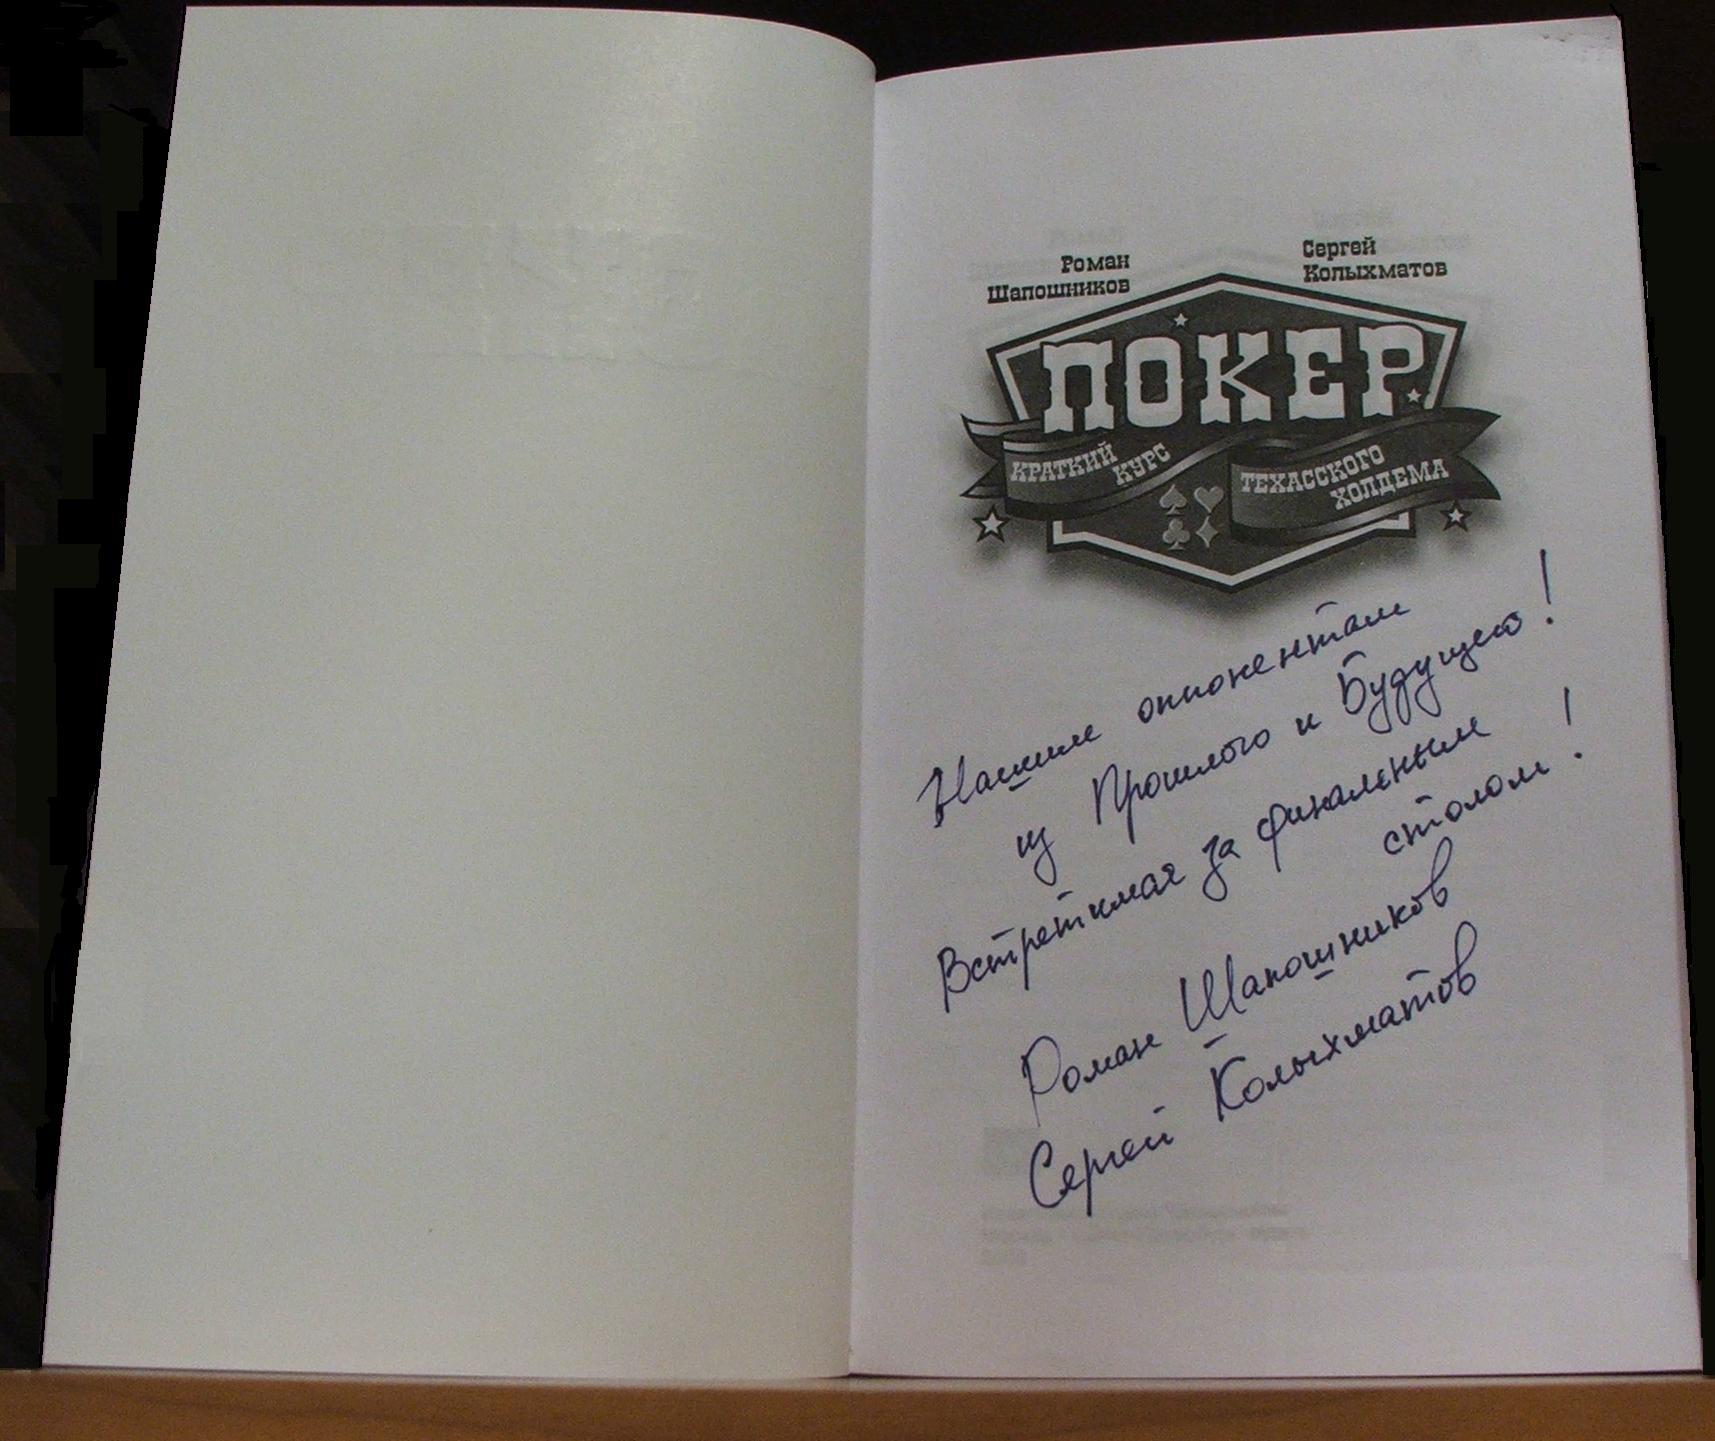 Роман
Шапошников
Сергей
Колыхматов
ПОКЕР
КРАТКИЙ КУРС
ТЕХАССКОГО ХОЛДЕМА
Нашим оппонентам
из Прошлого и Будущего!
Встретимся за финальным
столом!
Роман Шапошников
Сергей Колыхматов